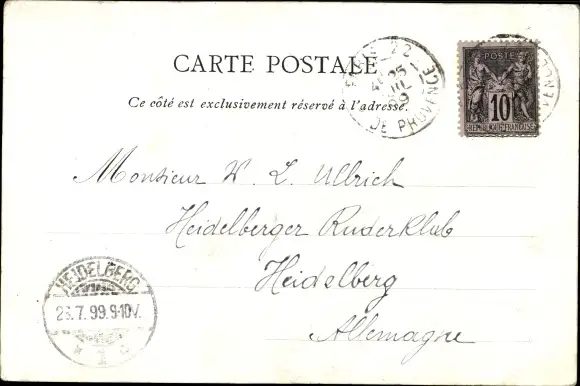 CARTE POSTALE
Ce côté est exclusivement réservé à l'adresse.
PARIS 22
25
JUIL
99
DE PROVENCE
POSTE
10
REPUBLIQUE FRANÇAISE
Monsieur W. L. Ullrich
Heidelberger Ruderklub
Heidelberg
Allemagne
HEIDELBERG
26.7.99.9-10V.
* 1 c